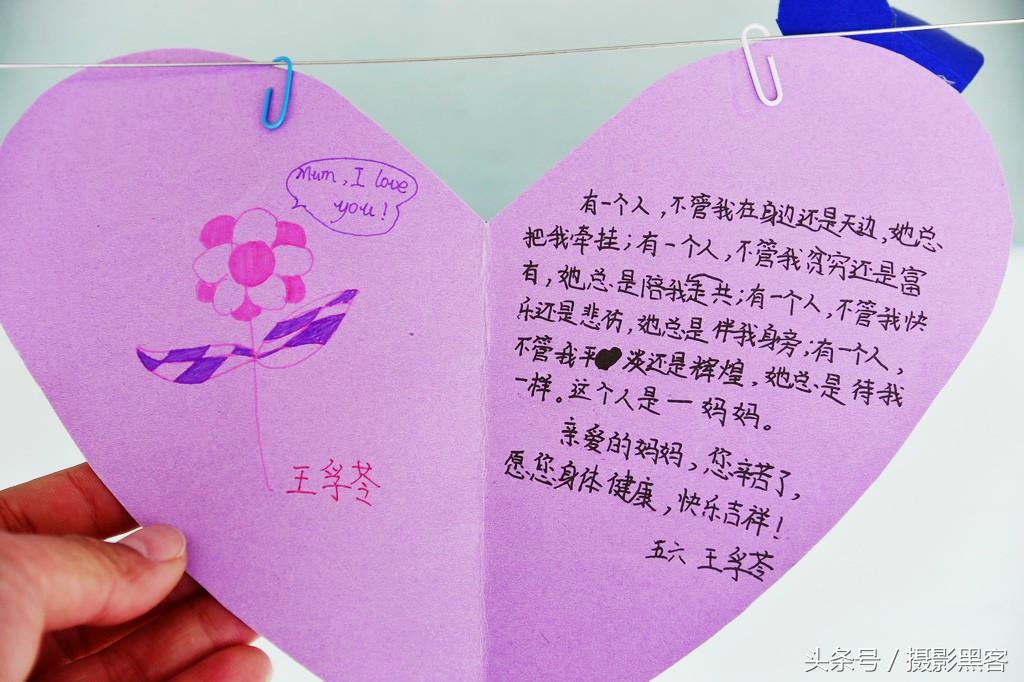 Mum, I love
you!
王孚苓
有一个人,不管我在身边还是天边,她总
把我牵挂;有一个人,不管我贫穷还是富
有,她总是陪我走共;有一个人,不管我快
乐还是悲伤,她总是伴我身旁;有一个人,
不管我平淡还是辉煌,她总是待我
一样。这个人是一妈妈。
亲爱的妈妈,您辛苦了,
愿您身体健康,快乐吉祥!
五六 王孚苓
头条号 / 摄影黑客